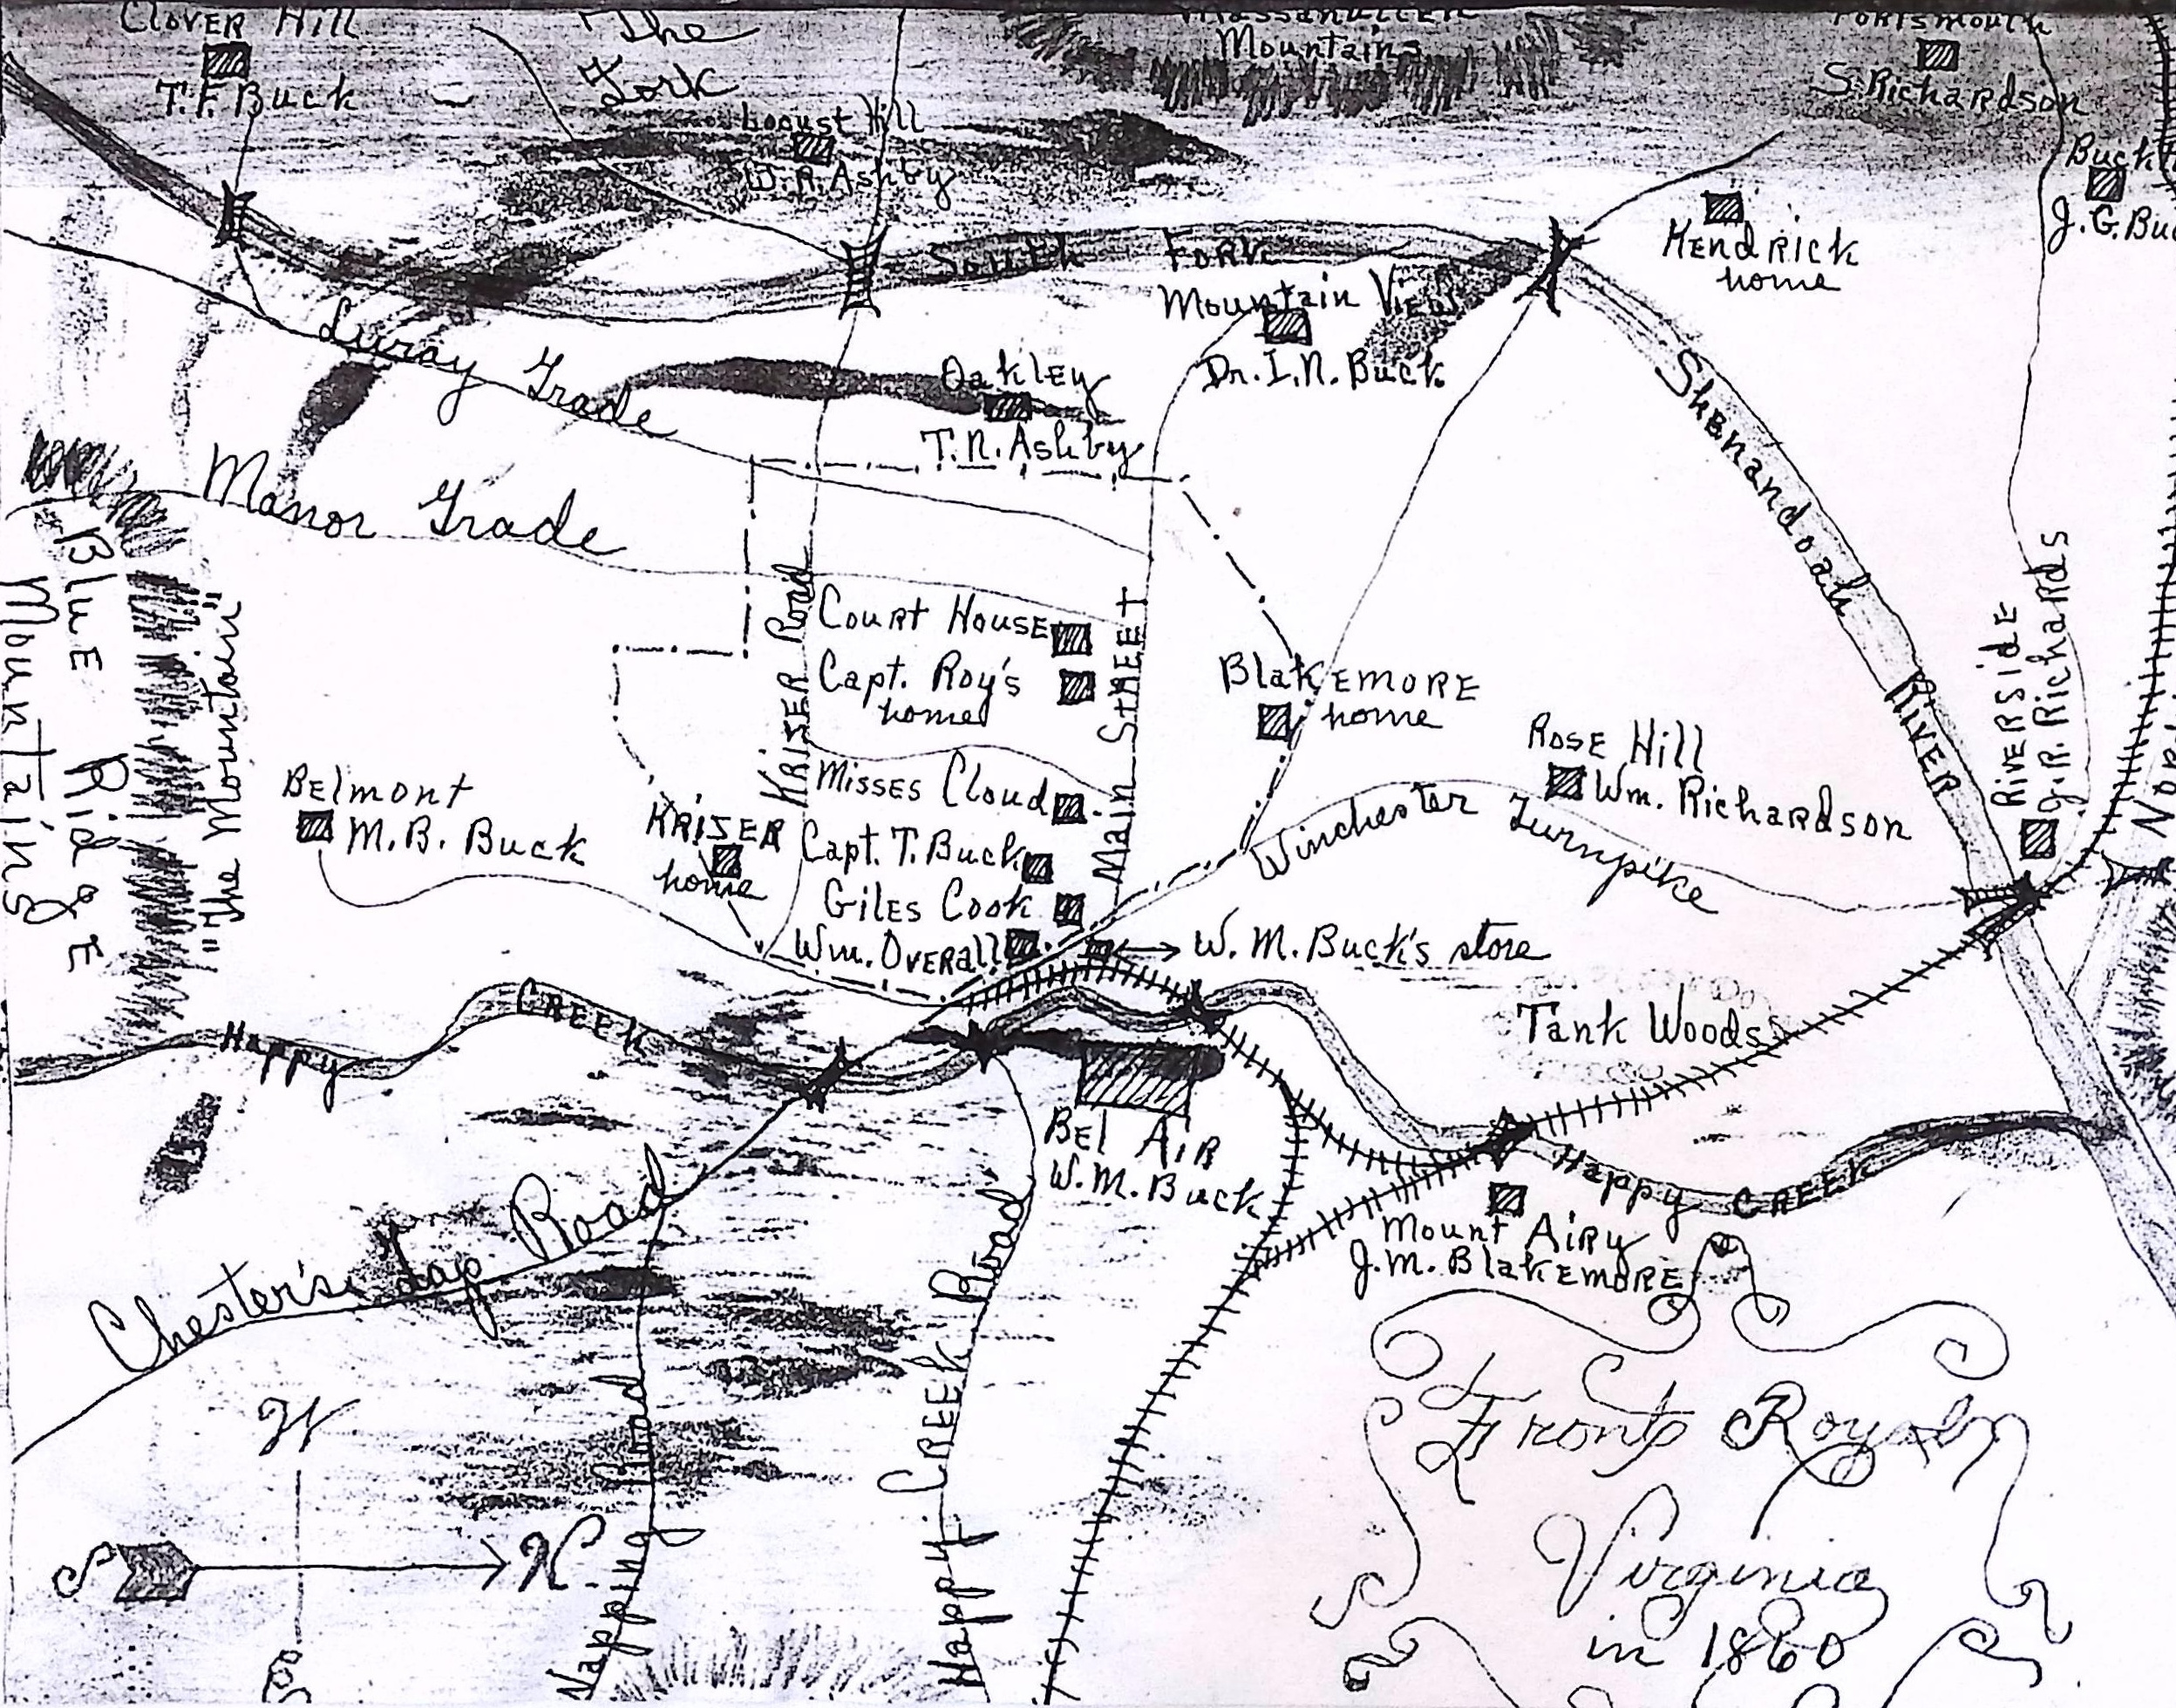 Clover Hill
T.F. Buck
The
Fork
Locust Hill
W.R. Ashby
Massanutten
Mountains
Portsmouth
S. Richardson
Buck
J.G. Buc
Hendrick
home
South Fork
Shenandoah
River
Mountain View
Dr. I.N. Buck
Luray Grade
Oakley
T.N. Ashby
Manor Grade
Blue Ridge
Mountains
"The Mountain"
Kriser Road
Court House
Capt. Roy's
home
Main Street
Blakemore
home
Rose Hill
Wm. Richardson
Riverside
J.R. Richards
Nor
Belmont
M.B. Buck
Kriser
home
Misses Cloud
Capt. T. Buck
Giles Cook
Wm. Overall
Winchester Turnpike
W.M. Buck's store
Tank Woods
Happy Creek
Bel Air
W.M. Buck
Happy Creek
Mount Airy
J.M. Blakemore
Chester's Gap Road
Happy Creek Road
W
S
N
E
Front Royal
Virginia
in 1860